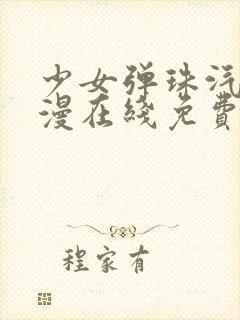 少女弹珠汽
漫在綫免費
程家有